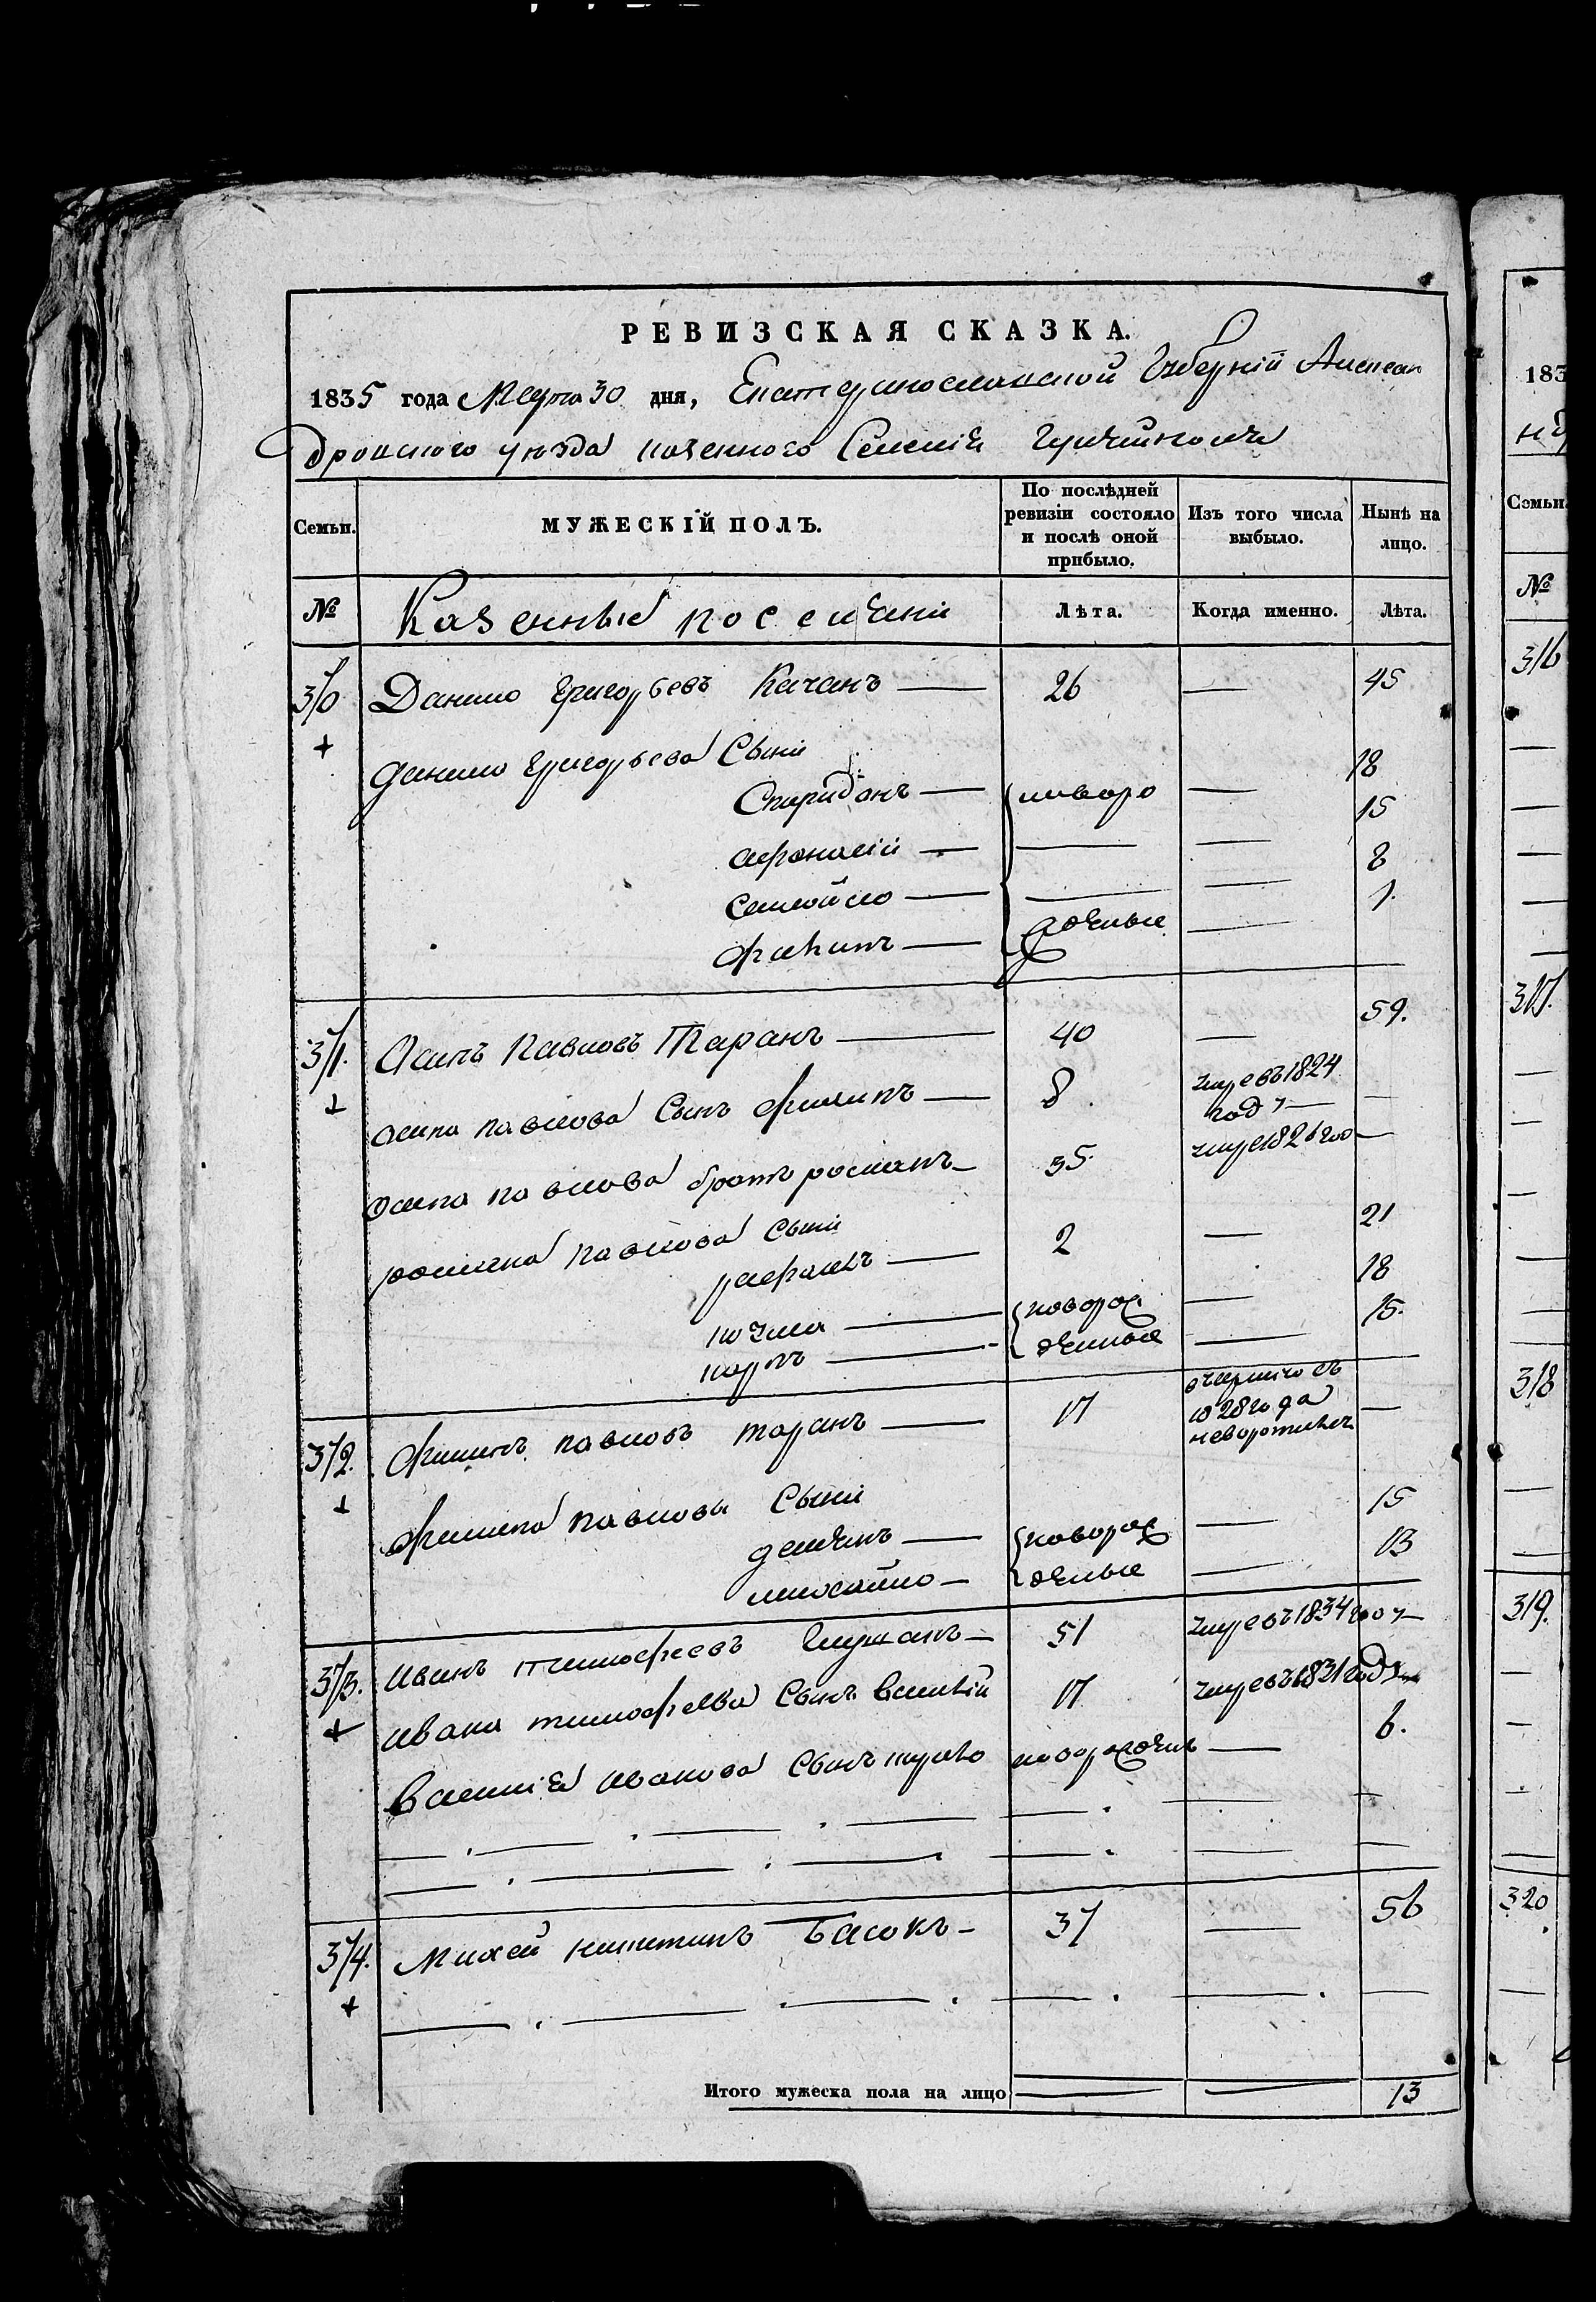 РЕВИЗСКАЯ СКАЗКА.
1835 года Марта 30 дня, Екатеринославской Губерніи Алексан
дровского уезда казенного Селенія
Семьи.
МУЖЕСКІЙ ПОЛЪ.
По послѣдней ревизіи состояло и послѣ оной прибыло.
Изъ того числа выбыло.
Нынѣ на лицо.
№
Казенные поселяни
Лѣта.
Когда именно.
Лѣта.
310 Данило Григорьевъ Качанъ — 26 — 45
+
данила Григорьева Сыни
Спиридонъ — новоро — 18
афанасій — — — 15
самойло — — — 8
филипъ — жденые — 1.
311. Осипъ Павловъ Таранъ — 40 — 59.
+
осипа павлова Сынъ филипъ — 8. умре въ 1824 году — —
осипа павлова братъ романъ — 35. умре 1826 год —
романа павлова Сыни
рафаилъ — 2 — 21
козма — новорож — 18
карпъ — денные — 15.
312. филипъ павловъ таранъ — 17 1828 года —
+
филипа павлова Сыни
демянъ — новорож — 15
михайло — деные — 13
313. иванъ тимофеевъ — 51 умре въ 1834 году —
+
ивана тимофеева Сынъ василій 17 умре въ 1831 году
василія иванова Сынъ новорожден — 6.
314. михей никитинъ Басокъ — 37 — 56
+
Итого мужеска пола на лицо — — 13
183
Семьи.
№
316
317.
318
319.
320